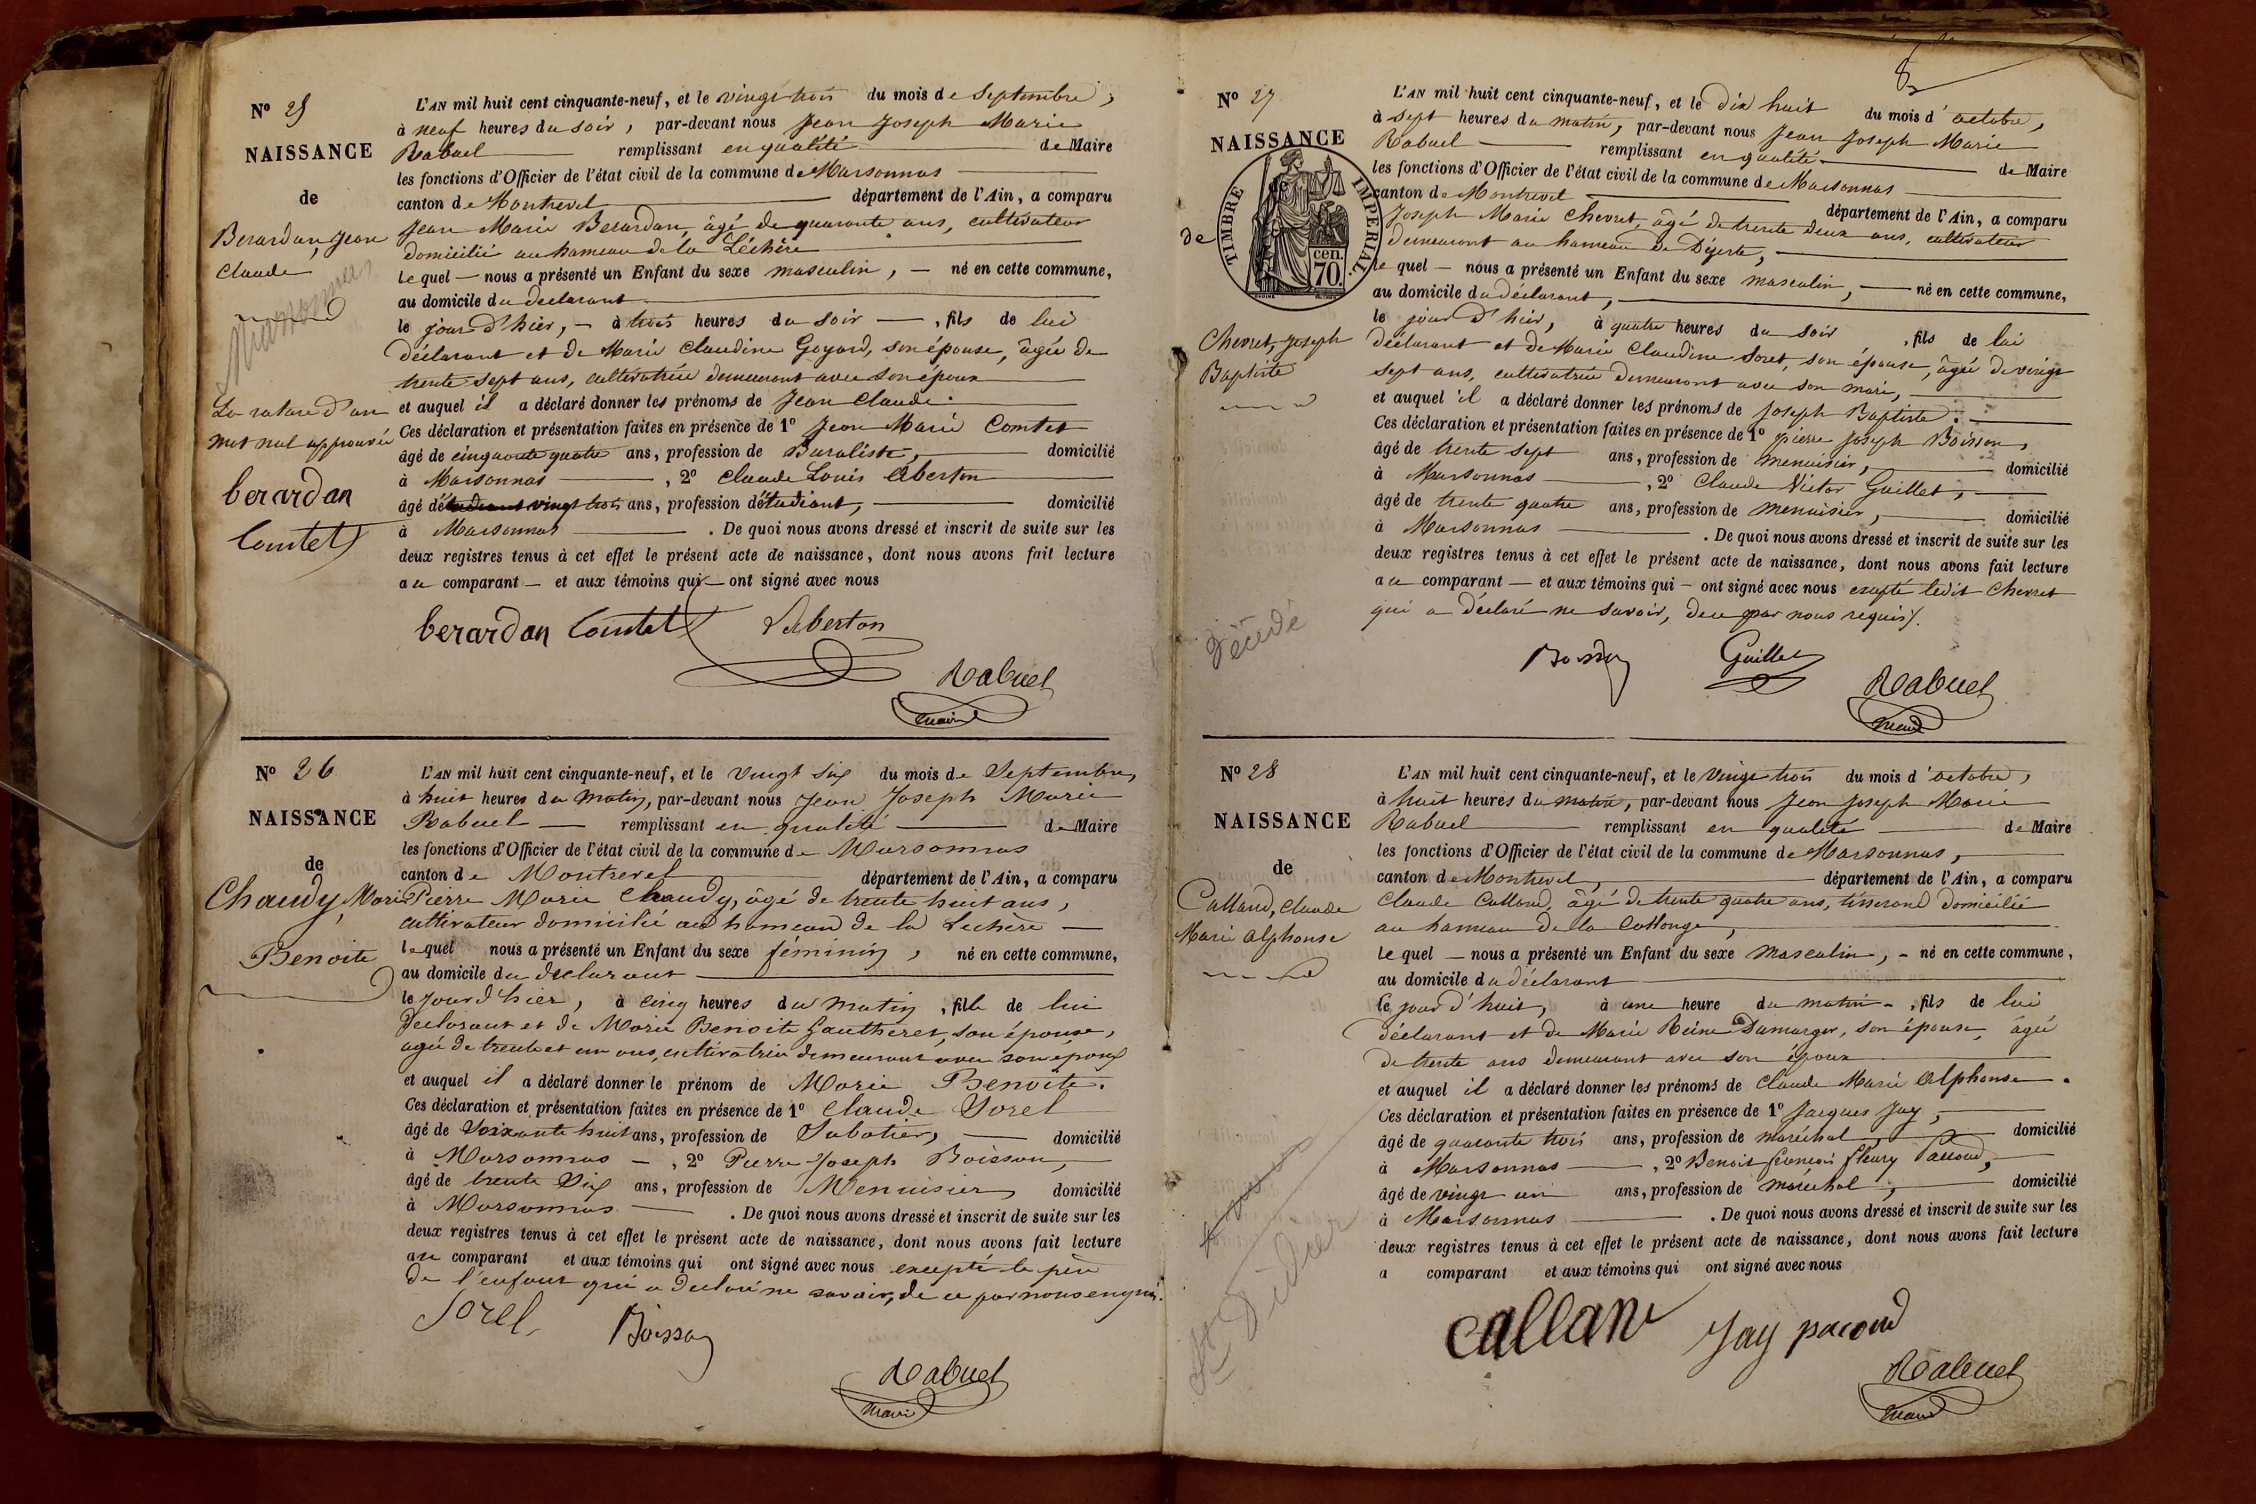 N° 25
NAISSANCE
de
Berardan, Jean
Claude
La rature d'un
mot nul approuvée
berardan
Comtet
L'AN mil huit cent cinquante-neuf, et le vingt trois du mois de Septembre,
à neuf heures du soir, par-devant nous Jean Joseph Marie
Rabuel remplissant en qualité de Maire
les fonctions d'Officier de l'état civil de la commune de Marsonnas
canton de Montrevel département de l'Ain, a comparu
Jean Marie Berardan, âgé de quarante ans, cultivateur
domicilié au hameau de la Léchère
lequel nous a présenté un Enfant du sexe masculin, né en cette commune,
au domicile du déclarant
le jour d'hier, à trois heures du soir, fils de lui
déclarant et de Marie Claudine Goyard, son épouse, âgée de
trente sept ans, cultivatrice demeurant avec son époux
et auquel il a déclaré donner les prénoms de Jean Claude.
Ces déclaration et présentation faites en présence de 1° Jean Marie Comtet
âgé de cinquante quatre ans, profession de Buraliste, domicilié
à Marsonnas, 2° Claude Louis Aberton
âgé de vingt trois ans, profession d'étudiant, domicilié
à Marsonnas. De quoi nous avons dressé et inscrit de suite sur les
deux registres tenus à cet effet le présent acte de naissance, dont nous avons fait lecture
au comparant et aux témoins qui ont signé avec nous
berardan Comtet Aberton
Rabuel
maire
N° 26
NAISSANCE
de
Chaudy, Marie
Benoite
L'AN mil huit cent cinquante-neuf, et le vingt six du mois de Septembre,
à huit heures du matin, par-devant nous Jean Joseph Marie
Rabuel remplissant en qualité de Maire
les fonctions d'Officier de l'état civil de la commune de Marsonnas
canton de Montrevel département de l'Ain, a comparu
Pierre Marie Chaudy, âgé de trente huit ans,
cultivateur domicilié au hameau de la Lechère
lequel nous a présenté un Enfant du sexe féminin, né en cette commune,
au domicile du déclarant
le jour d'hier, à cinq heures du matin, fille de lui
déclarant et de Marie Benoite Gautheret, son épouse,
agée de trente et un ans, cultivatrice demeurant avec son époux
et auquel il a déclaré donner le prénom de Marie Benoite.
Ces déclaration et présentation faites en présence de 1° Claude Sorel
âgé de soixante huit ans, profession de Sabotier, domicilié
à Marsonnas, 2° Pierre Joseph Boisson,
âgé de trente six ans, profession de Menuisier domicilié
à Marsonnas. De quoi nous avons dressé et inscrit de suite sur les
deux registres tenus à cet effet le présent acte de naissance, dont nous avons fait lecture
au comparant et aux témoins qui ont signé avec nous excepté le père
de l'enfant qui a déclaré ne savoir, de ce par nous enquis.
Sorel Boisson
Rabuel
maire
8
N° 27
NAISSANCE
de
TIMBRE IMPERIAL.
cen.
70.
Chevret, Joseph
Baptiste
Décédé
L'AN mil huit cent cinquante-neuf, et le dix huit du mois d'octobre,
à sept heures du matin, par-devant nous Jean Joseph Marie
Rabuel remplissant en qualité de Maire
les fonctions d'Officier de l'état civil de la commune de Marsonnas
canton de Montrevel département de l'Ain, a comparu
Joseph Marie Chevret, âgé de trente deux ans, cultivateur
demeurant au hameau de
lequel nous a présenté un Enfant du sexe masculin, né en cette commune,
au domicile du déclarant,
le jour d'hier, à quatre heures du soir, fils de lui
déclarant et de Marie Claudine Soret, son épouse, âgée de vingt
sept ans, cultivatrice demeurant avec son mari,
et auquel il a déclaré donner les prénoms de Joseph Baptiste.
Ces déclaration et présentation faites en présence de 1° pierre Joseph Boisson,
âgé de trente sept ans, profession de menuisier, domicilié
à Marsonnas, 2° Claude Victor Guillet,
âgé de trente quatre ans, profession de menuisier, domicilié
à Marsonnas. De quoi nous avons dressé et inscrit de suite sur les
deux registres tenus à cet effet le présent acte de naissance, dont nous avons fait lecture
au comparant et aux témoins qui ont signé avec nous excepté ledit Chevret
qui a déclaré ne savoir, de ce par nous requis.
Boisson Guillet
Rabuel
maire
N° 28
NAISSANCE
de
Calland, Claude
Marie alphonse
St Didier
L'AN mil huit cent cinquante-neuf, et le vingt trois du mois d'octobre,
à huit heures du matin, par-devant nous Jean Joseph Marie
Rabuel remplissant en qualité de Maire
les fonctions d'Officier de l'état civil de la commune de Marsonnas,
canton de Montrevel, département de l'Ain, a comparu
Claude Calland, âgé de trente quatre ans, tisserand domicilié
au hameau de la Collonge,
lequel nous a présenté un Enfant du sexe masculin, né en cette commune,
au domicile du déclarant
le jour d'huit, à une heure du matin, fils de lui
déclarant et de Marie Reine Damarger, son épouse, âgée
de trente ans demeurant avec son époux
et auquel il a déclaré donner les prénoms de Claude Marie Alphonse.
Ces déclaration et présentation faites en présence de 1° Jacques Jay,
âgé de quarante trois ans, profession de maréchal, domicilié
à Marsonnas, 2° Benoit françois fleury Pacoud,
âgé de vingt un ans, profession de maréchal, domicilié
à Marsonnas. De quoi nous avons dressé et inscrit de suite sur les
deux registres tenus à cet effet le présent acte de naissance, dont nous avons fait lecture
a comparant et aux témoins qui ont signé avec nous
Callan Jay pacoud
Rabuel
maire